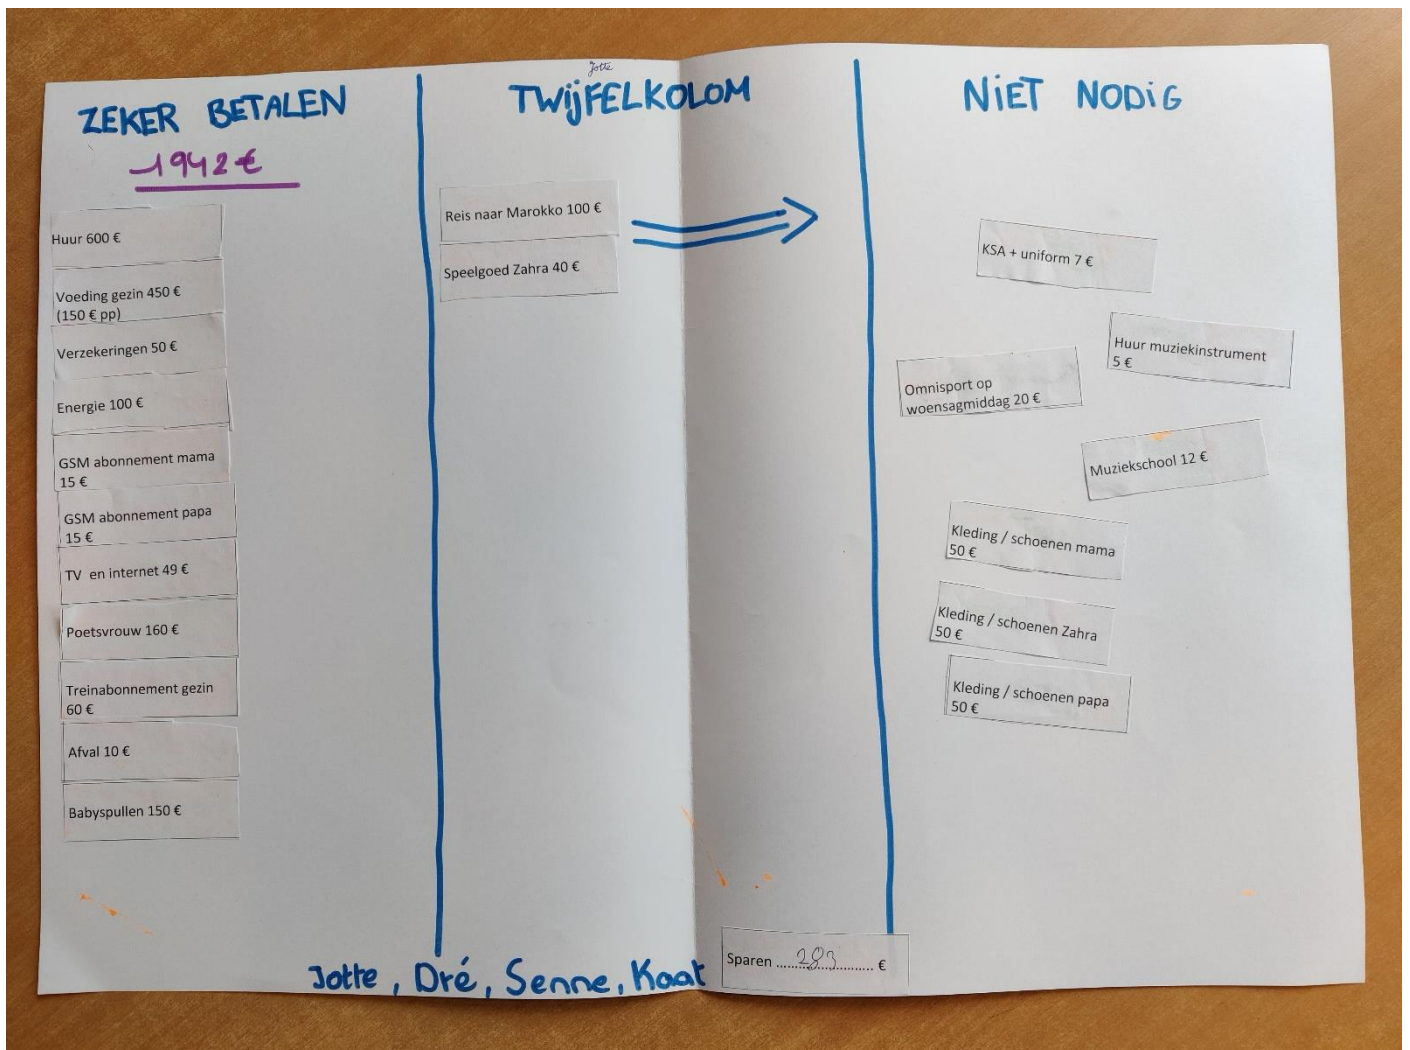 ZEKER BETALEN
1942 €
Huur 600 €
Voeding gezin 450 €
(150 € pp)
Verzekeringen 50 €
Energie 100 €
GSM abonnement mama
15 €
GSM abonnement papa
15 €
TV en internet 49 €
Poetsvrouw 160 €
Treinabonnement gezin
60 €
Afval 10 €
Babyspullen 150 €
Jotte
TWijFELKOLOM
Reis naar Marokko 100 €
Speelgoed Zahra 40 €
NiET NODiG
KSA + uniform 7 €
Huur muziekinstrument
5 €
Omnisport op
woensagmiddag 20 €
Muziekschool 12 €
Kleding / schoenen mama
50 €
Kleding / schoenen Zahra
50 €
Kleding / schoenen papa
50 €
Jotte, Dré, Senne, Kaat
Sparen ....283.... €